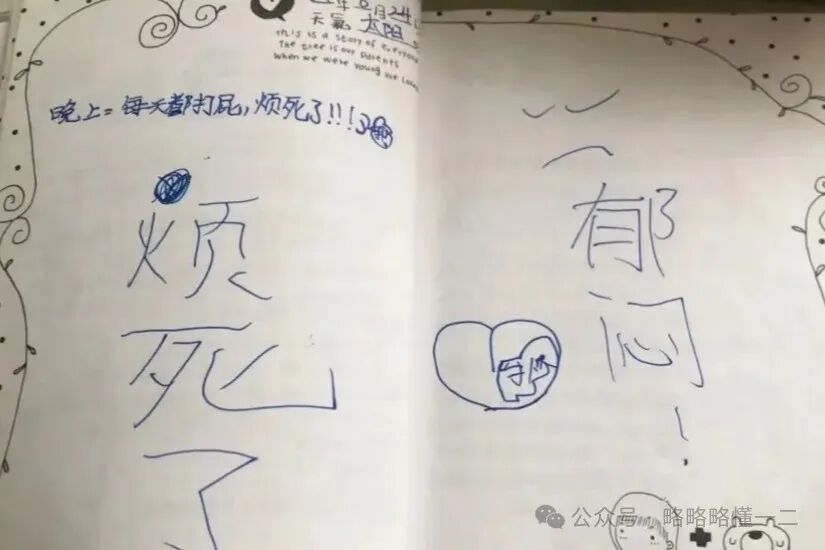 月24
天氣 太阳
This is a story of everyone
The tree is our parents
When we were young we loved
晚上：每天都打屁，烦死了!!!
烦
死
了
郁
闷
!
公众号 略略略懂一二